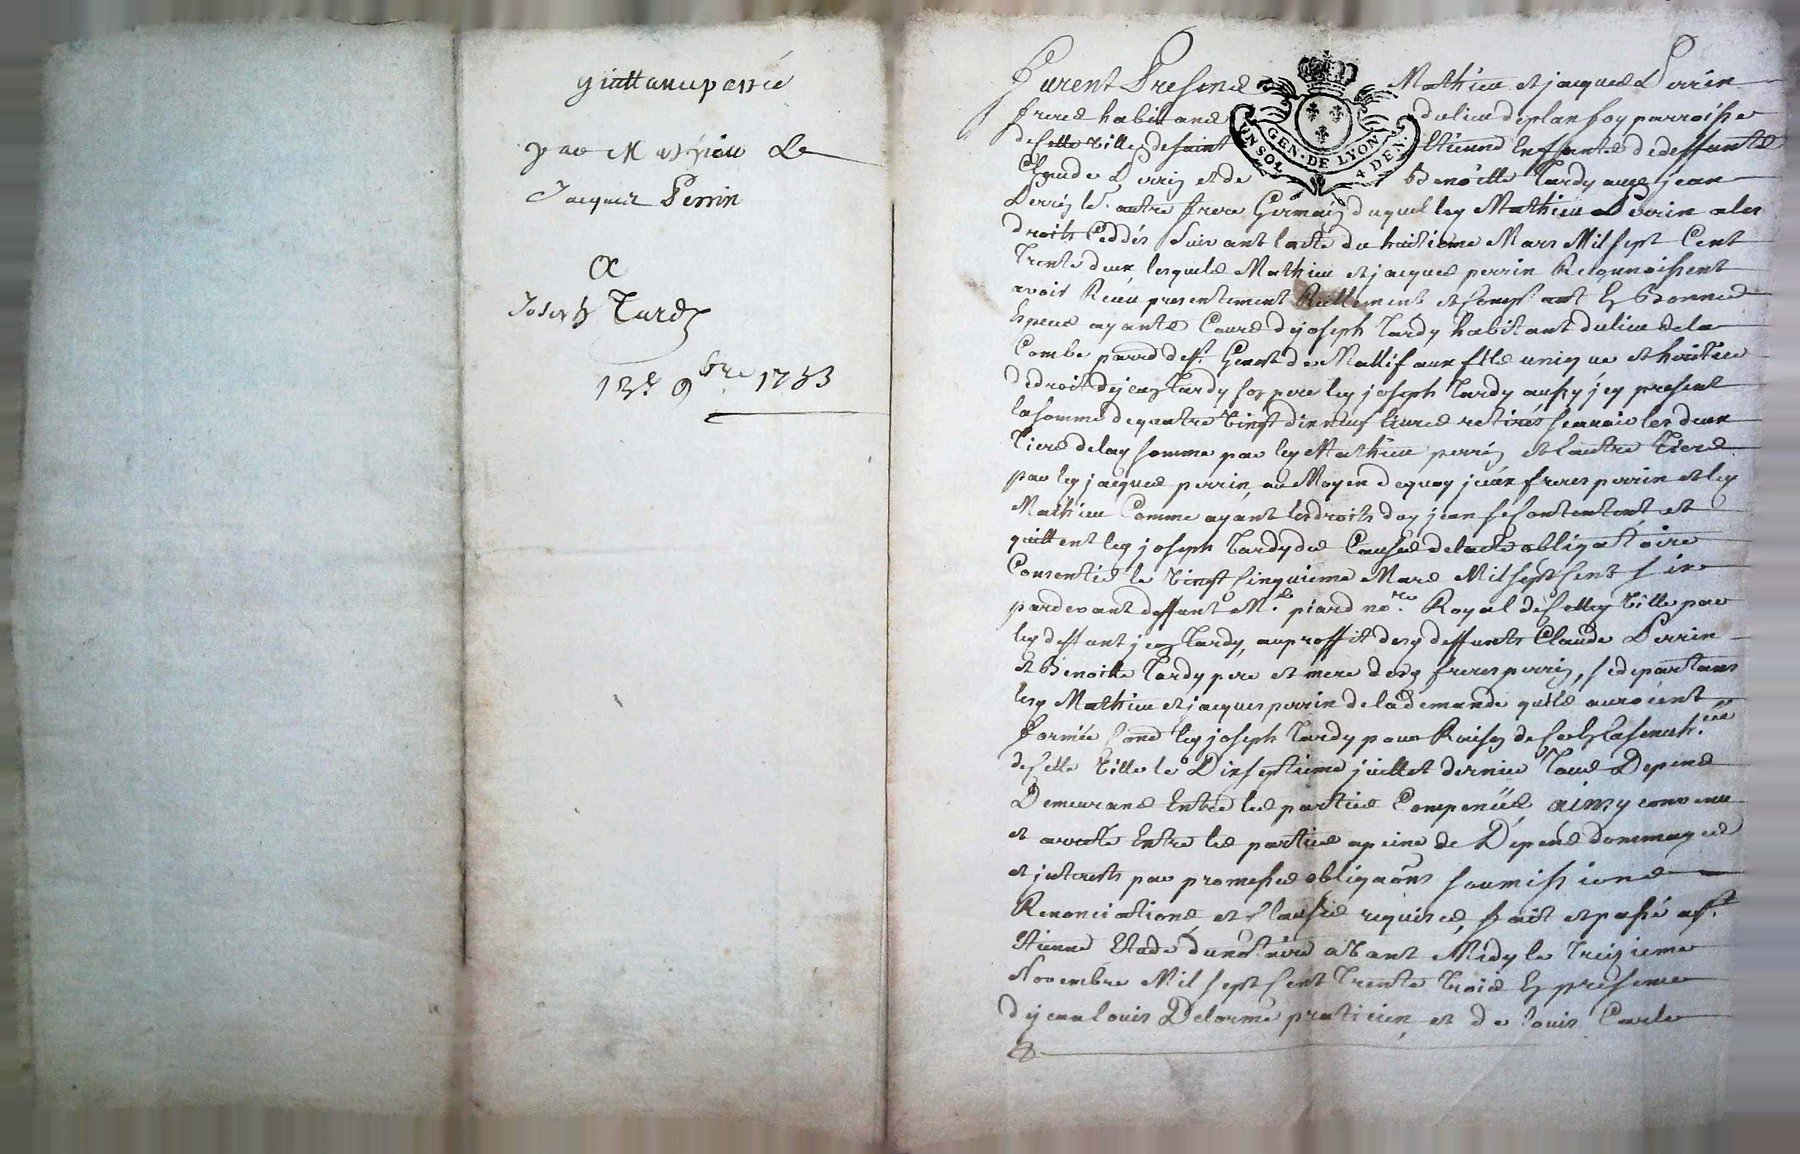 quittance passée
par Mathieu &
Jacques Perrin
a
Joseph Tardy
13e 9bre 1733
Furent Presens Mathieu et jacques Perrin
freres habitans du lieu de planfoy parroisse
de cette ville de saint Etienne Enfants de deffunts
GEN. DE LYON
4 DEN.
Claude Perrin et de Benoitte Tardy aux jean
Perrin autre frere Germain duquel led Mathieu Perrin a les
droits Ceddés suivant lacte du huitieme Mars Mil sept Cent
Trente deux lesquels Mathieu et jacques perrin Reconnoissent
avoir Receu presentement Reellement et Compt ant En Bonnes
Especes ayants Cours de joseph Tardy habitant du lieu de la
Combe parr. de St Genest de Mallifaux fils unique et heritier
de droit de jean Tardy son pere led joseph Tardy aussy jcy present
la somme de quatre vingt dix neuf livres retirés scavoir les deux
Tiers de lad somme par led Mathieu perrin et lautre Tiers
par led jacques perrin, au Moyen de quoy freres perrin et led
Mathieu Comme ayant les droits dud jean se Contentent et
quittent led joseph Tardy des Causes de lacte obligatoire
Consentie le vingt cinquieme Mars Mil sept cent six
pardevant deffunt Me. piard nore. Royal de cette ville par
led deffunt jean Tardy, au proffit desd deffunts Claude Perrin
et Benoitte Tardy pere et mere desd freres perrin, se departans
lesd Mathieu et jacques perrin de la demande quils auroient
formée Contre led joseph Tardy pour Raison de ce En la
de cette ville le Dix septieme juillet dernier Tous Depens
Demeurans Entre les parties Compensés ainsy convenu
et arreté Entre les parties a peine de Depens dommages
et jnterests par promesses obligaons soumissions
Renonciations et Clauses requises, fait et passé a St
Etienne Etude du notaire avant Midy le Treizieme
Novembre Mil sept cent Trente Trois En presence
de jean louis Delorme praticien et de louis Carle